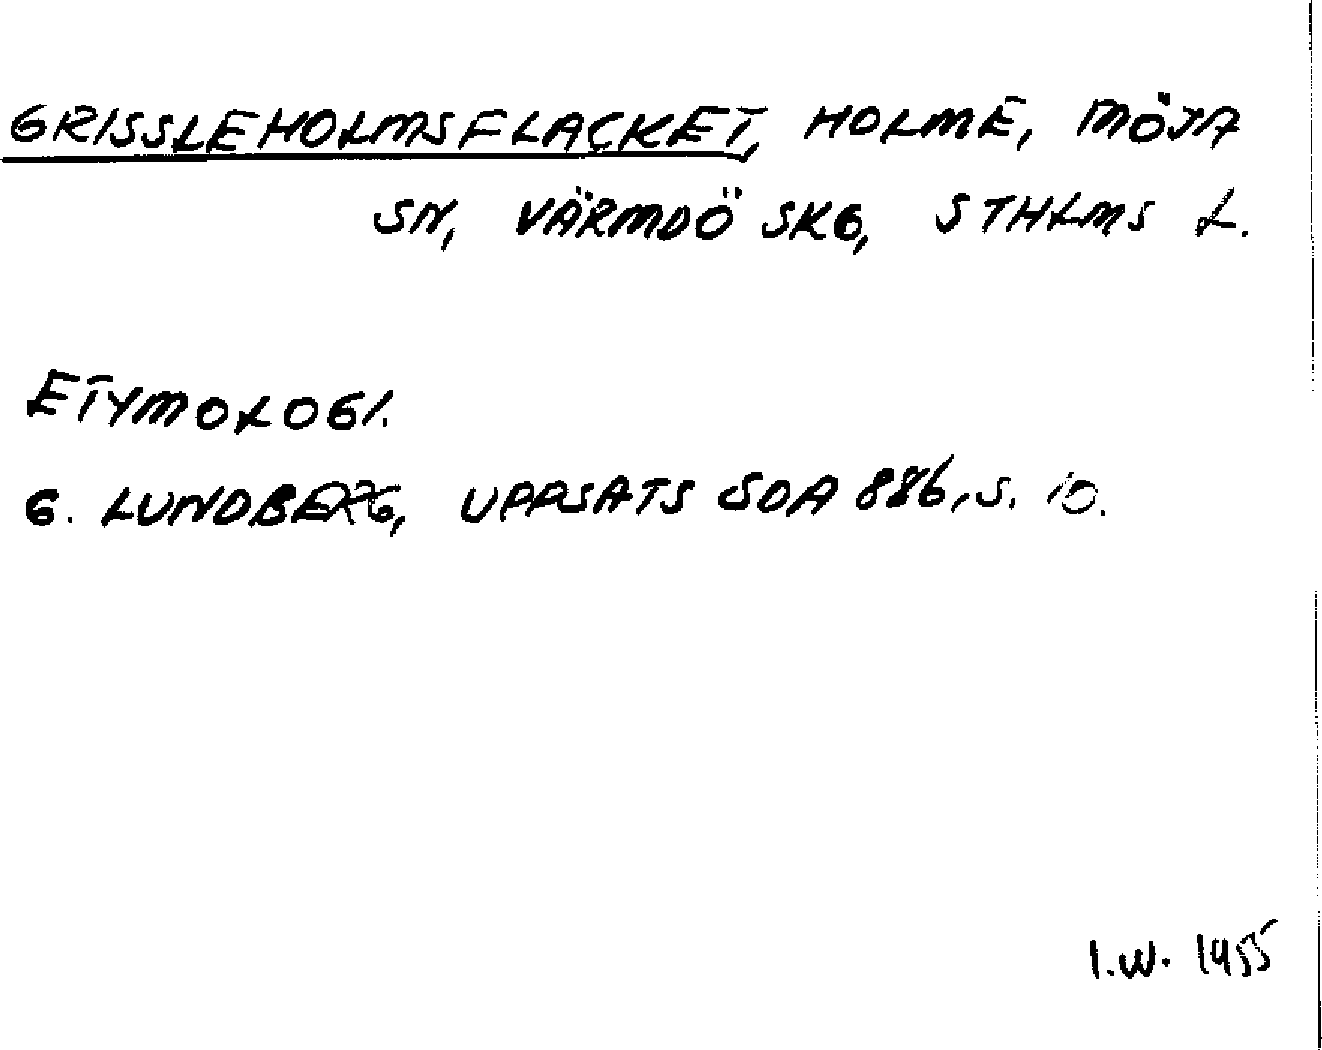 GRISSLEHOLMSFLACKET, HOLME, MÖJA
SN, VÄRMDÖ SKG, STHLMS L.
ETYMOLOGI.
G. LUNDBERG, UPPSATS SOA 886, S. 10.
I.W. 1955